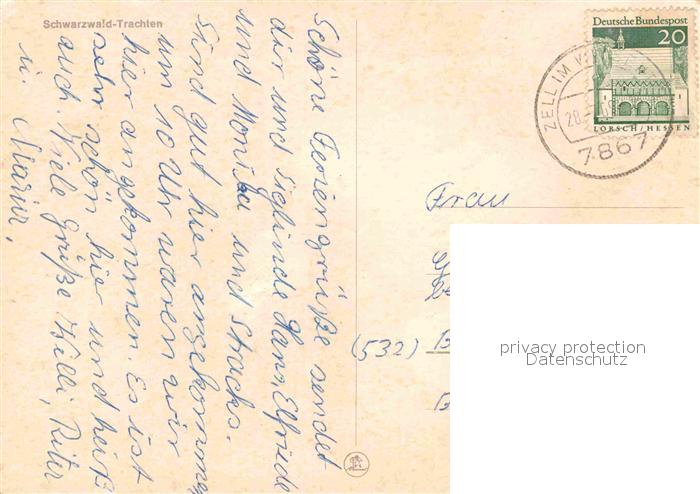 Schwarzwald-Trachten
Schöne Feriengrüße sendet
dir und Sieglinde Hans, Elfriede
und Monika und Strachs.
Sind gut hier angekommen
um 10 Uhr waren wir
hier angekommen. Es ist
sehr schön hier und heiß
auch. Viele Grüße Willi, Rita
u. Maria,
Deutsche Bundespost
20
LORSCH/HESSEN
ZELL IM
28.
7867
Frau
(532)
privacy protection
Datenschutz